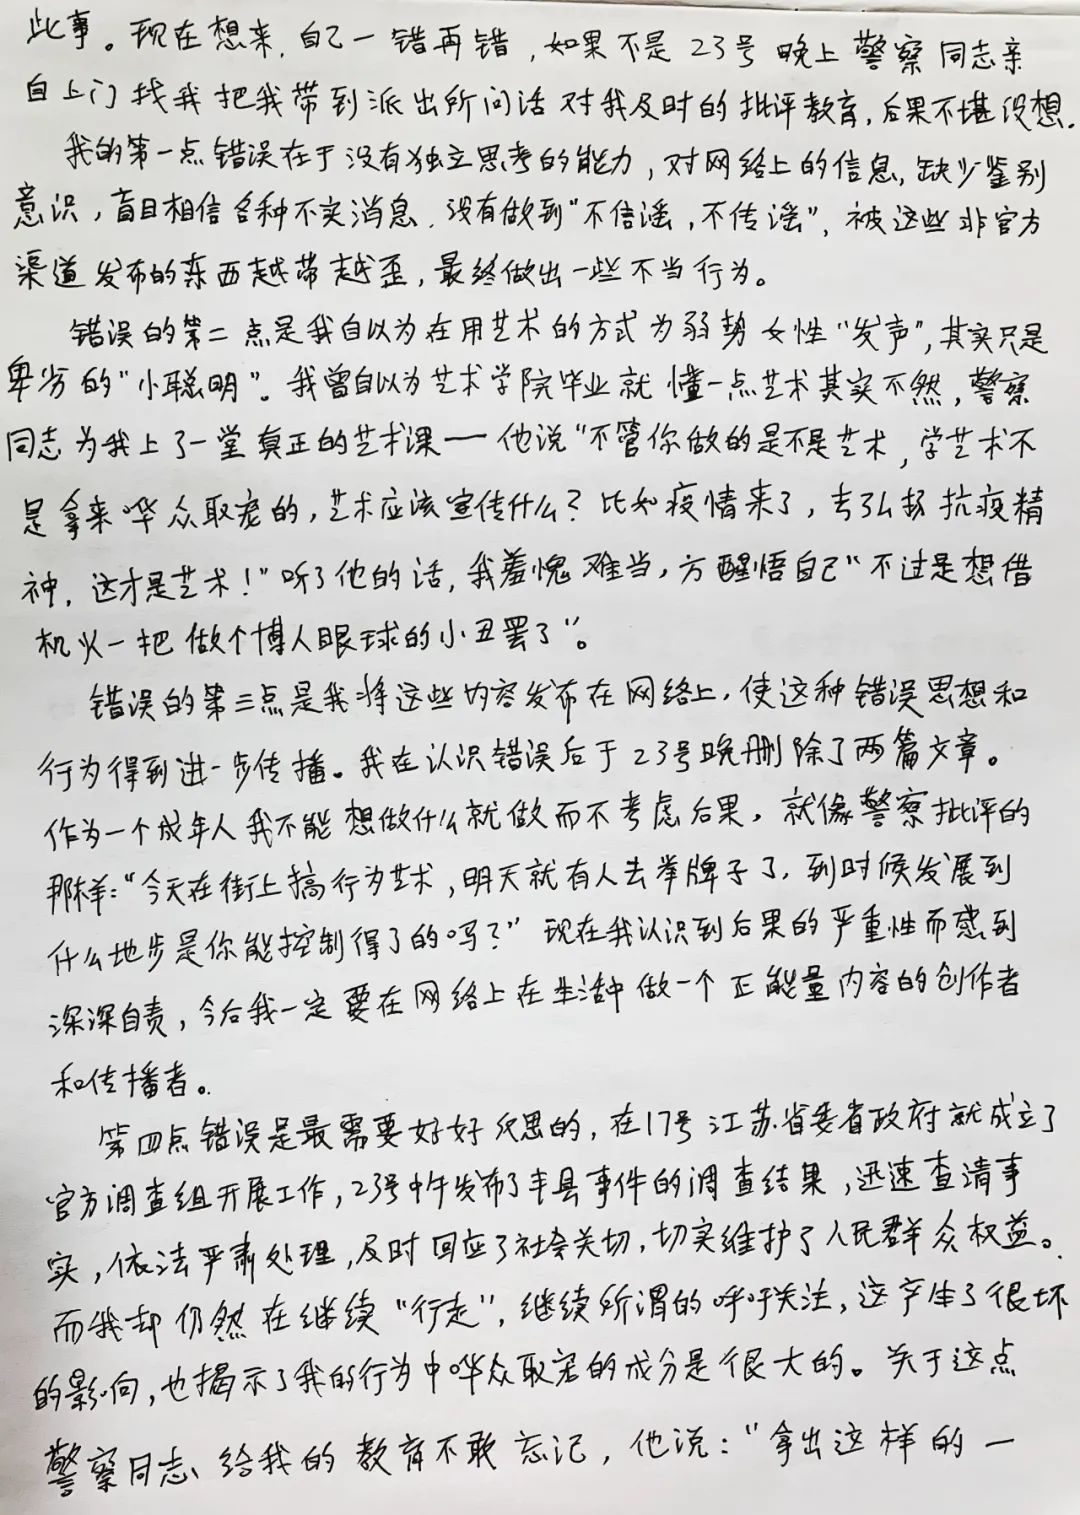 此事。现在想来,自己一错再错,如果不是23号晚上警察同志亲
自上门找我把我带到派出所问话对我及时的批评教育,后果不堪设想.
我的第一点错误在于没有独立思考的能力,对网络上的信息,缺少鉴别
意识,盲目相信各种不实消息.没有做到"不信谣,不传谣",被这些非官方
渠道发布的东西越带越歪,最终做出一些不当行为。
错误的第二点是我自以为在用艺术的方式为弱势女性"发声",其实只是
卑劣的"小聪明"。我曾自以为艺术学院毕业就懂一点艺术其实不然,警察
同志为我上了一堂真正的艺术课——他说"不管你做的是不是艺术,学艺术不
是拿来哗众取宠的,艺术应该宣传什么?比如疫情来了,去弘扬抗疫精
神,这才是艺术!"听了他的话,我羞愧难当,方醒悟自己"不过是想借
机火一把做个博人眼球的小丑罢了"。
错误的第三点是我将这些内容发布在网络上,使这种错误思想和
行为得到进一步传播。我在认识错误后于23号晚删除了两篇文章。
作为一个成年人我不能想做什么就做而不考虑后果,就像警察批评的
那样:"今天在街上搞行为艺术,明天就有人去举牌子了,到时候发展到
什么地步是你能控制得了的吗?"现在我认识到后果的严重性而感到
深深自责,今后我一定要在网络上在生活中做一个正能量内容的创作者
和传播者。
第四点错误是最需要好好反思的,在17号江苏省委省政府就成立了
官方调查组开展工作,23号中午发布了丰县事件的调查结果,迅速查清事
实,依法严肃处理,及时回应了社会关切,切实维护了人民群众权益。
而我却仍然在继续"行走",继续所谓的呼吁关注,这产生了很坏
的影响,也揭示了我的行为中哗众取宠的成分是很大的。关于这点
警察同志给我的教育不敢忘记,他说:"拿出这样的一